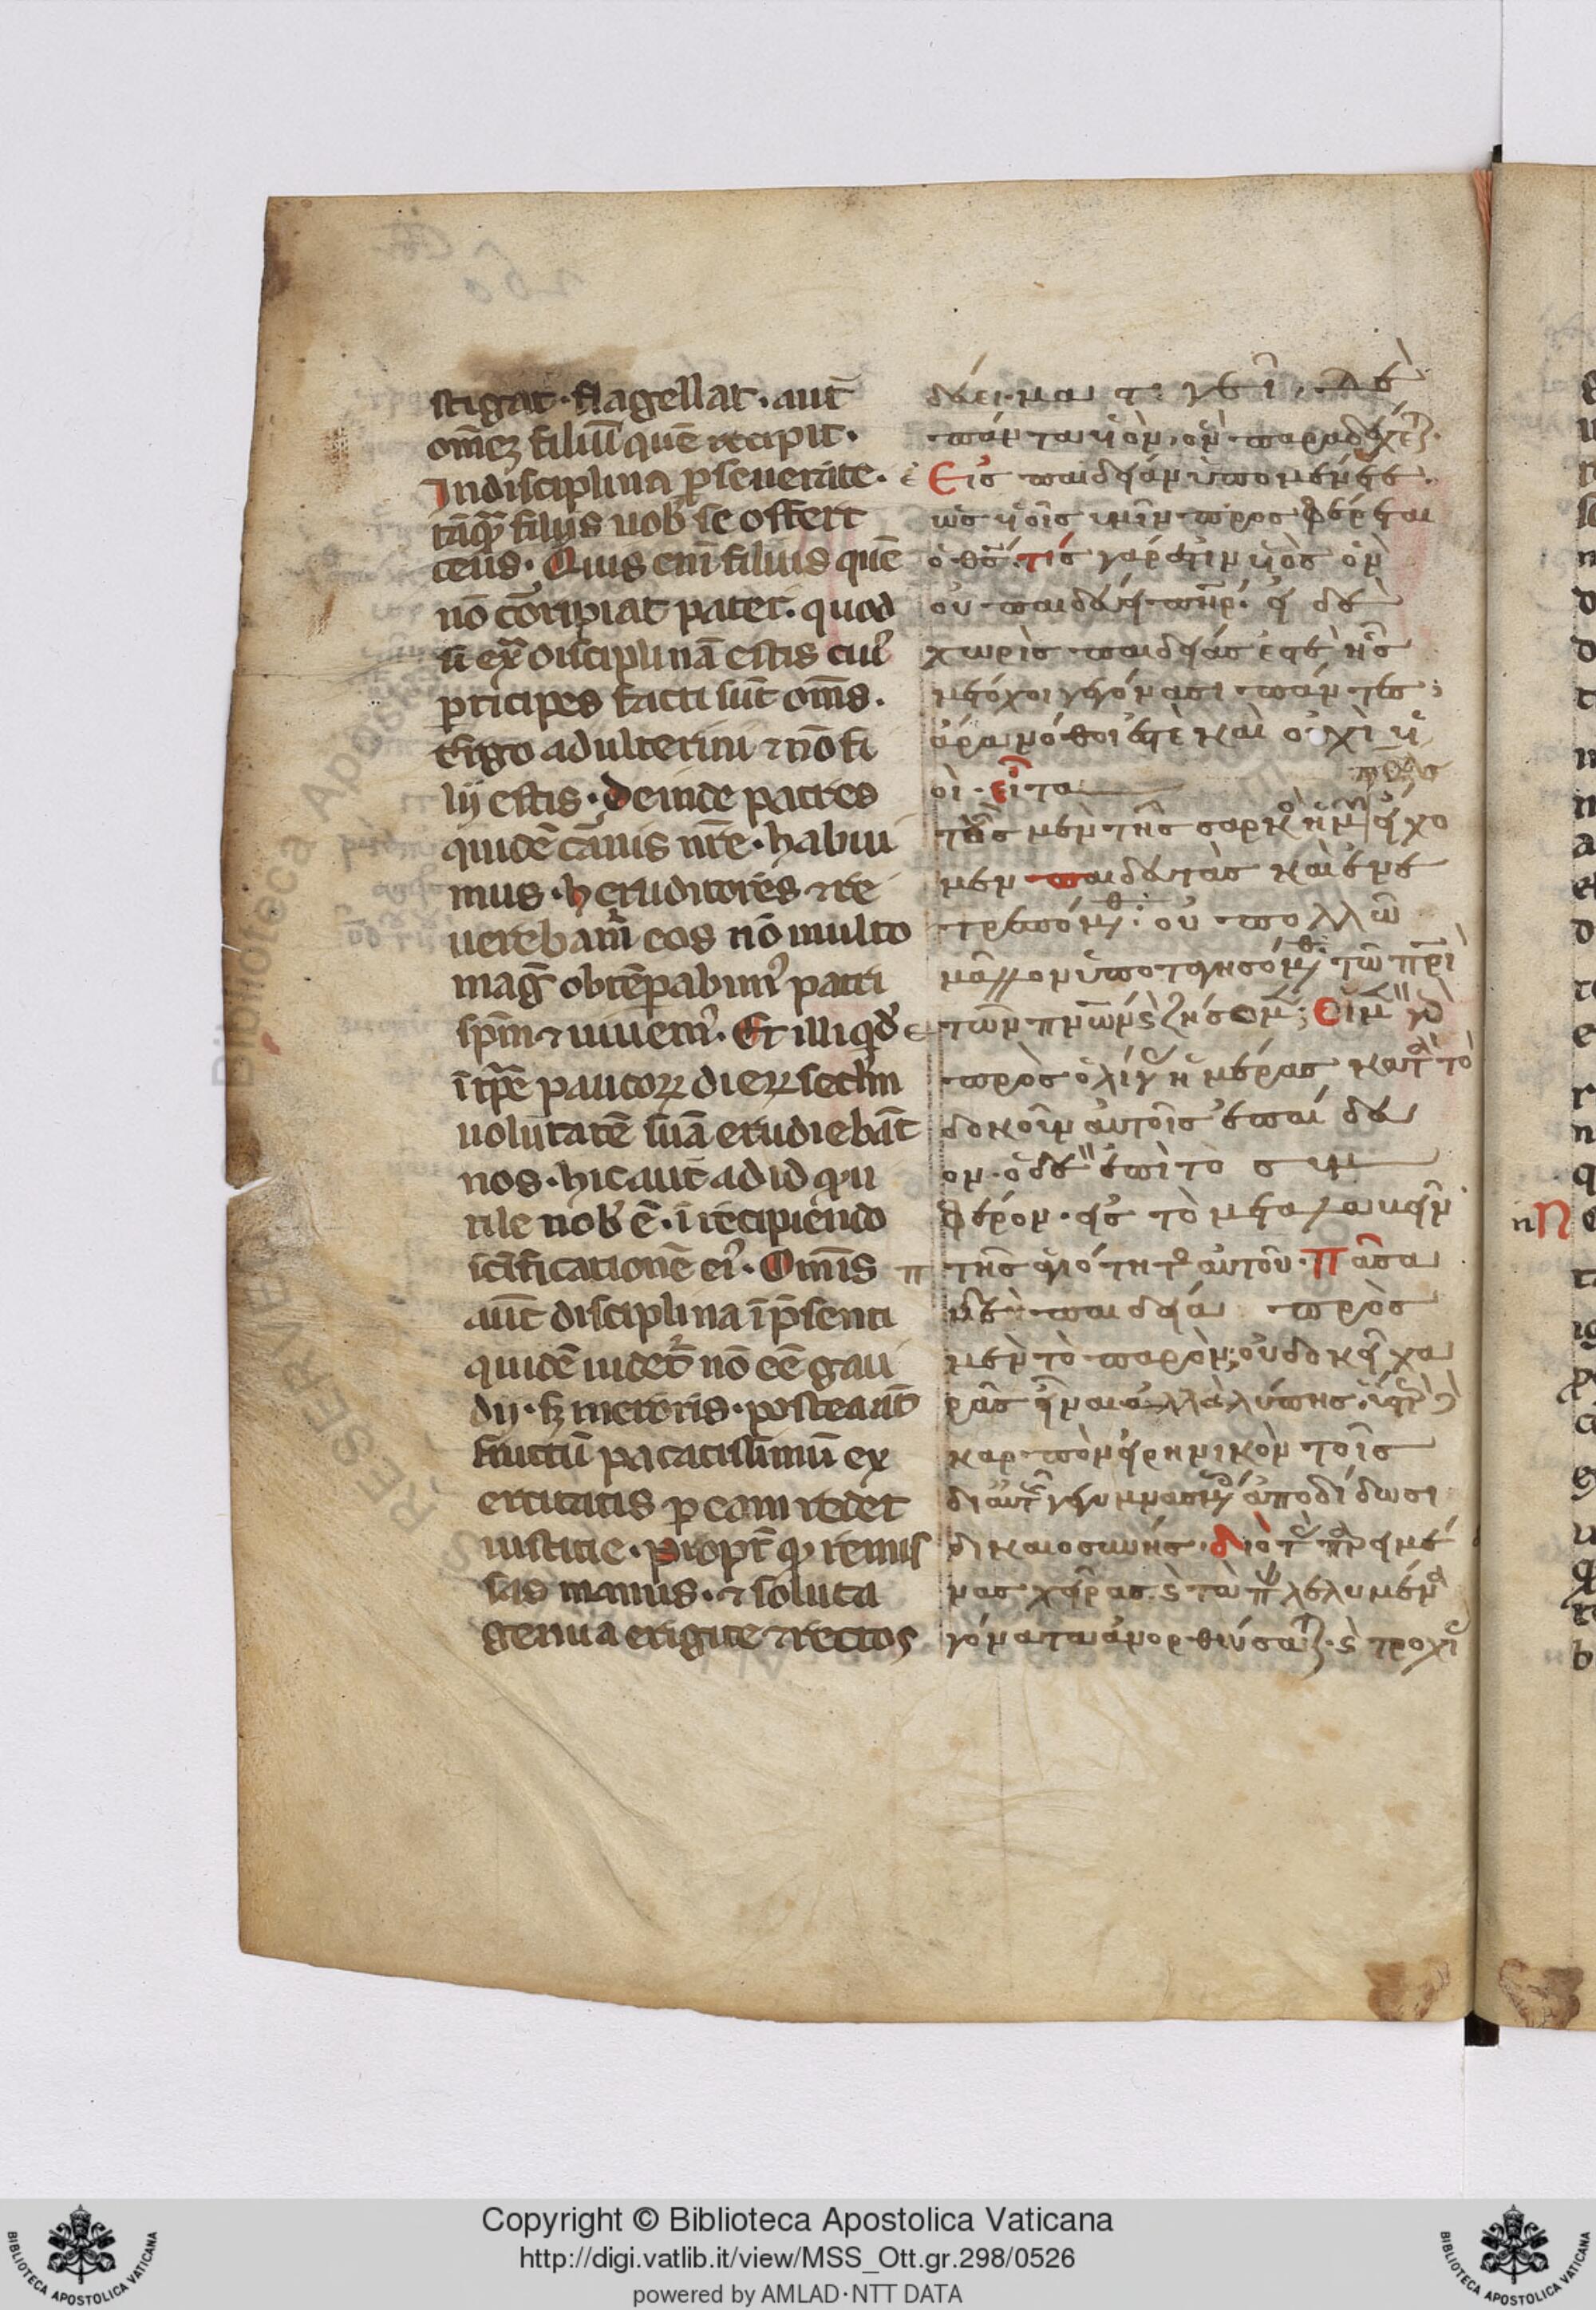 stigat · flagellat · aut̄
om̄eꝫ filiū quē recipit ·
In disciplina ꝑseuerate ·
tāq̄ꝫ filijs uob̾ se offert
deus · Quis eni᷆ filius quē
nō corripiat pater · quod
si ext̾ disciplinā estis cui᾽
ꝑticipes facti sūt om̄s ·
Ergo adulterini ⁊ nō fi
lij estis · Deinde patres
quidē carnis nr̄e · habui
mus · eruditores ⁊ re
uerebam̄ eos nō multo
mag̾ obtēꝑabim᾽ patri
sp̄m ⁊ uiuem᾽ · Et illi qd̾
ī tp̄e paucoꝝ dieꝝ secd̄m
uolūtatē suā erudiebāt
nos · hic aut̄ ad id qd̾ u
tile nob̾ ē · ī recipiendo
sc̄ificationē ei᾽ · Omīs
aut̄ disciplina ī p̄senti
quidē uidet᾽ nō eē gau
dij · sꝫ meroris · postea aūt
fructū pacatissimū ex
ercitatis ꝑ eam reddet
iusticie · Propt̾ qd̾ remis
sas manus · ⁊ soluta
genua erigite ⁊ rectos
πάντα υἱὸν, ὃν παραδέχετ
Εἰς παιδείαν ὑπομένετε ·
ὡς υἱοῖς ὑμῖν προσφέρεται
ὁ θς̄ · τίς γάρ ἐστιν υἱὸς ὃν
οὐ παιδεύει πηρ̄ · εἰ δὲ
χωρίς παιδείας ἐστὲ ἧς
μέτοχοι γεγόνασι πάντες ·
ἄρα νόθοι ἐστὲ καὶ οὐχὶ υἱ
οὶ · εἶτα
πρ̄ας
τοὺς μὲν τῆς σαρκὸ ἡμῶν εἴχο
μεν παιδευτὰς καὶ ἐνε
τρεπόμεθ · οὐ πολλῶ
μᾶλλον ὑποταγησόμεθ τῶ πρ̄ὶ
τῶν πν̄ων κ ζήσομεν · οἱ μὲν γὰ
πρὸς ὀλίγ ἡμέρας κατὰ τὸ
δοκοῦν αὐτοῖς ἐπαίδευ
ον · ὁ δὲ ἐπὶ τὸ συμ
φέρον · εἰς τὸ μεταλαβεῖν
τῆς ἁγιότητο αὐτοῦ · Πᾶσα
δὲ παιδεία πρὸς
μὲν τὸ παρὸν, οὐ δοκεῖ χα
ρᾶς εἶναι ἀλλὰ λύπης · ὕστερ δὲ
καρπὸν εἰρηνικὸν τοῖς
δι αὐτῆς γεγυμνασμένοις ἀποδίδωσι
δικαιοσύνης · διὸ τὰς παρειμέ
νας χεῖρας κ τὰ π λελυμένα
γόνατα ἀνορθώσατ · κ τροχι
Copyright © Biblioteca Apostolica Vaticana
http://digi.vatlib.it/view/MSS_Ott.gr.298/0526
powered by AMLAD·NTT DATA
BIBLIOTECA APOSTOLICA VATICANA
BIBLIOTECA APOSTOLICA VATICANA